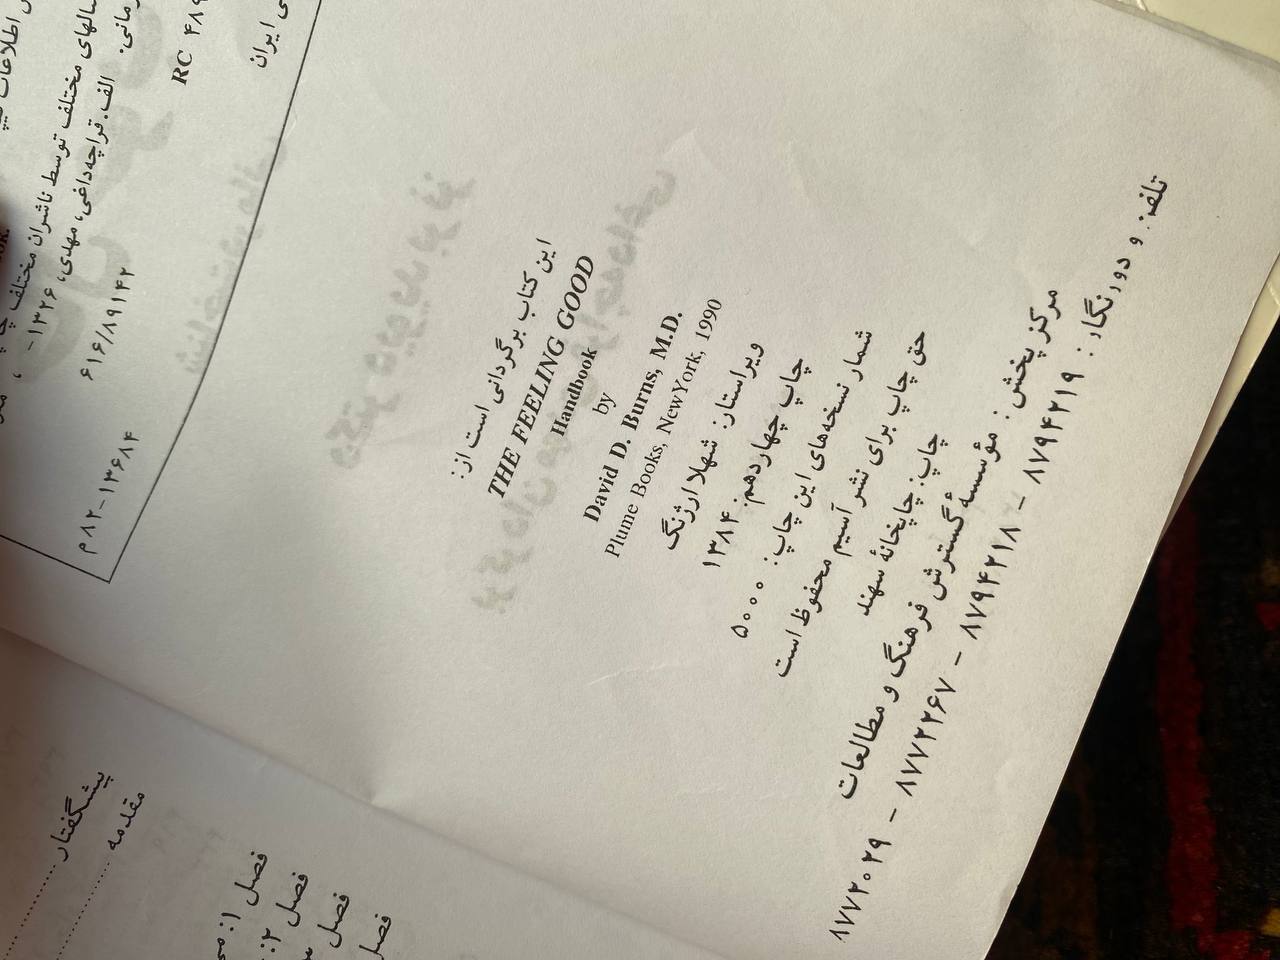 سالهای مختلف توسط ناشران مختلف
الف. قراچه‌داغی، مهدی، ۱۳۲۶-
RC ۴۸۹
۶۱۶/۸۹۱۴۲
ایران
م۸۲-۱۳۶۸۴
این کتاب برگردانی است از:
THE FEELING GOOD
Handbook
by
David D. Burns, M.D.
Plume Books, NewYork, 1990
ویراستار: شهلا ارژنگ
چاپ چهاردهم: ۱۳۸۴
شمار نسخه‌های این چاپ: ۵۰۰۰
حق چاپ برای نشر آسیم محفوظ است
چاپ: چاپخانهٔ سهند
مرکز پخش: مؤسسهٔ گسترش فرهنگ و مطالعات
تلفن و دورنگار: ۸۷۹۴۲۱۹ - ۸۷۹۴۲۱۸ - ۸۷۷۲۲۶۷ - ۸۷۷۲۰۲۹
پیشگفتار
مقدمه
فصل ۱:
فصل ۲:
فصل
فصل